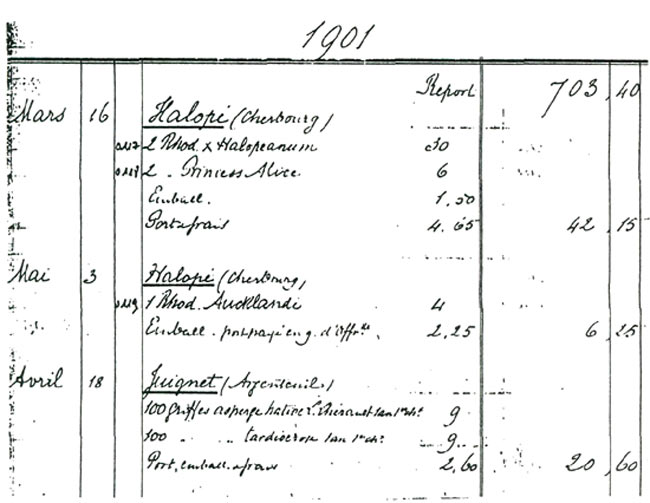 1901
Report 703,40
Mars 16 Halopé (Cherbourg)
0117 2 Rhod. x Halopeanum 30
0118 2 „ Princess Alice 6
Emball. 1,50
Port & frais 4,65 42,15
Mai 3 Halopé (Cherbourg)
0119 1 Rhod. Aucklandi 4
Emball. port payé en g. d'Aff. 2,25 6,25
Avril 18 Juignet (Argenteuil)
100 griffes asperge hative L. 1 an 1er ch. 9
100 „ „ tardive rose 1 an 1er ch. 9
Port, emball. & frais 2,60 20,60